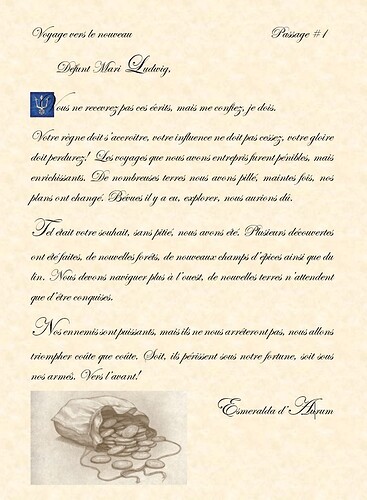 Voyage vers le nouveau Passage #1
Défunt Mari Ludwig,
Vous ne recevrez pas ces écrits, mais me confiez, je dois.
Votre règne doit s'accroître, votre influence ne doit pas cessez, votre gloire
doit perdurez! Les voyages que nous avons entrepris furent pénibles, mais
enrichissants. De nombreuses terres nous avons pillé, maintes fois, nos
plans ont changé. Bévues il y a eu, explorer, nous aurions dû.
Tel était votre souhait, sans pitié, nous avons été. Plusieurs découvertes
ont été faites, de nouvelles forêts, de nouveaux champs d'épices ainsi que du
lin. Nous devons naviguer plus à l'ouest, de nouvelles terres n'attendent
que d'être conquises.
Nos ennemis sont puissants, mais ils ne nous arrêteront pas, nous allons
triompher coûte que coûte. Soit, ils périssent sous notre fortune, soit sous
nos armes. Vers l'avant!
Esmeralda d'Aurum